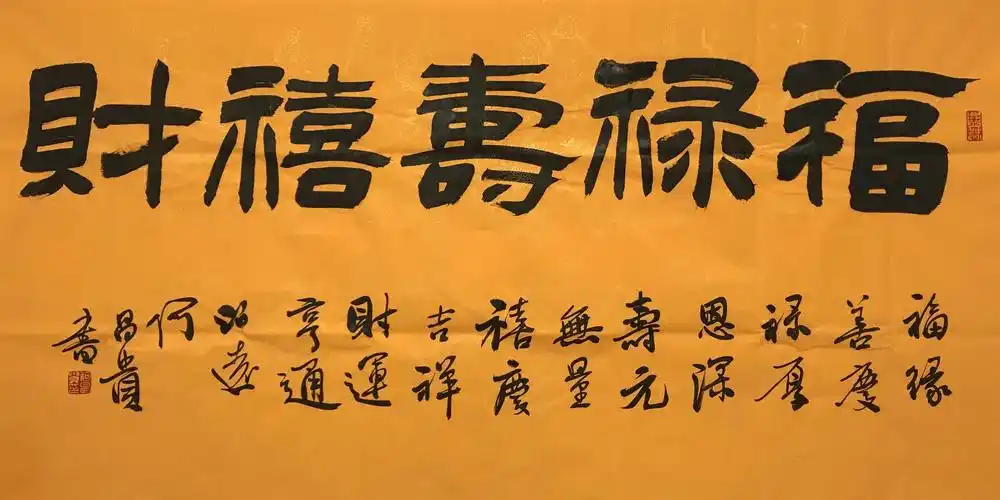 福禄壽禧財
福緣
善慶
禄厚
恩深
壽元
無量
禧慶
吉祥
財運
亨通
遠
何
昌貴
書